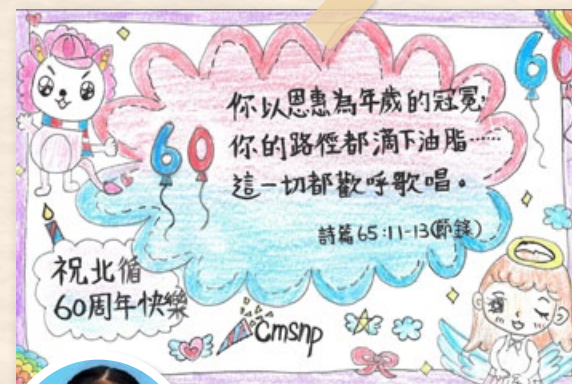 你以恩惠為年歲的冠冕，
你的路徑都滴下油脂……
這一切都歡呼歌唱。
詩篇65:11-13(節錄)
60
60
祝北循
60周年快樂
Cmsnp